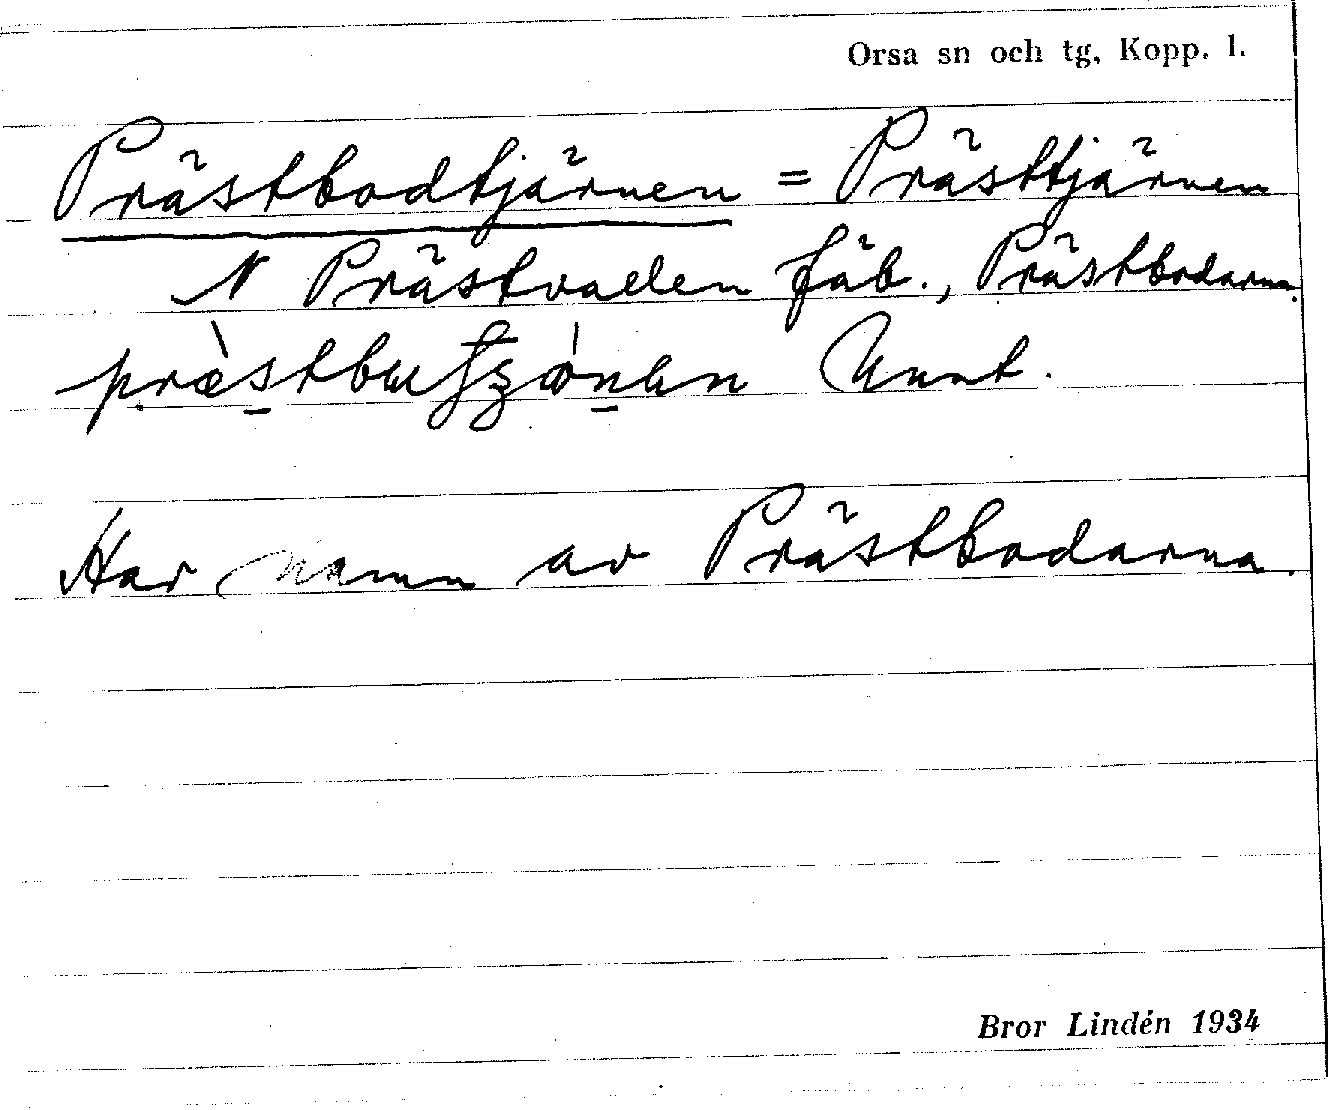 Orsa sn och tg, Kopp. l.
Prästbodtjärnen = Prästtjärnen
N Prästvallen fäb., Prästbodarna.
Har namn av Prästbodarna.
Bror Lindén 1934